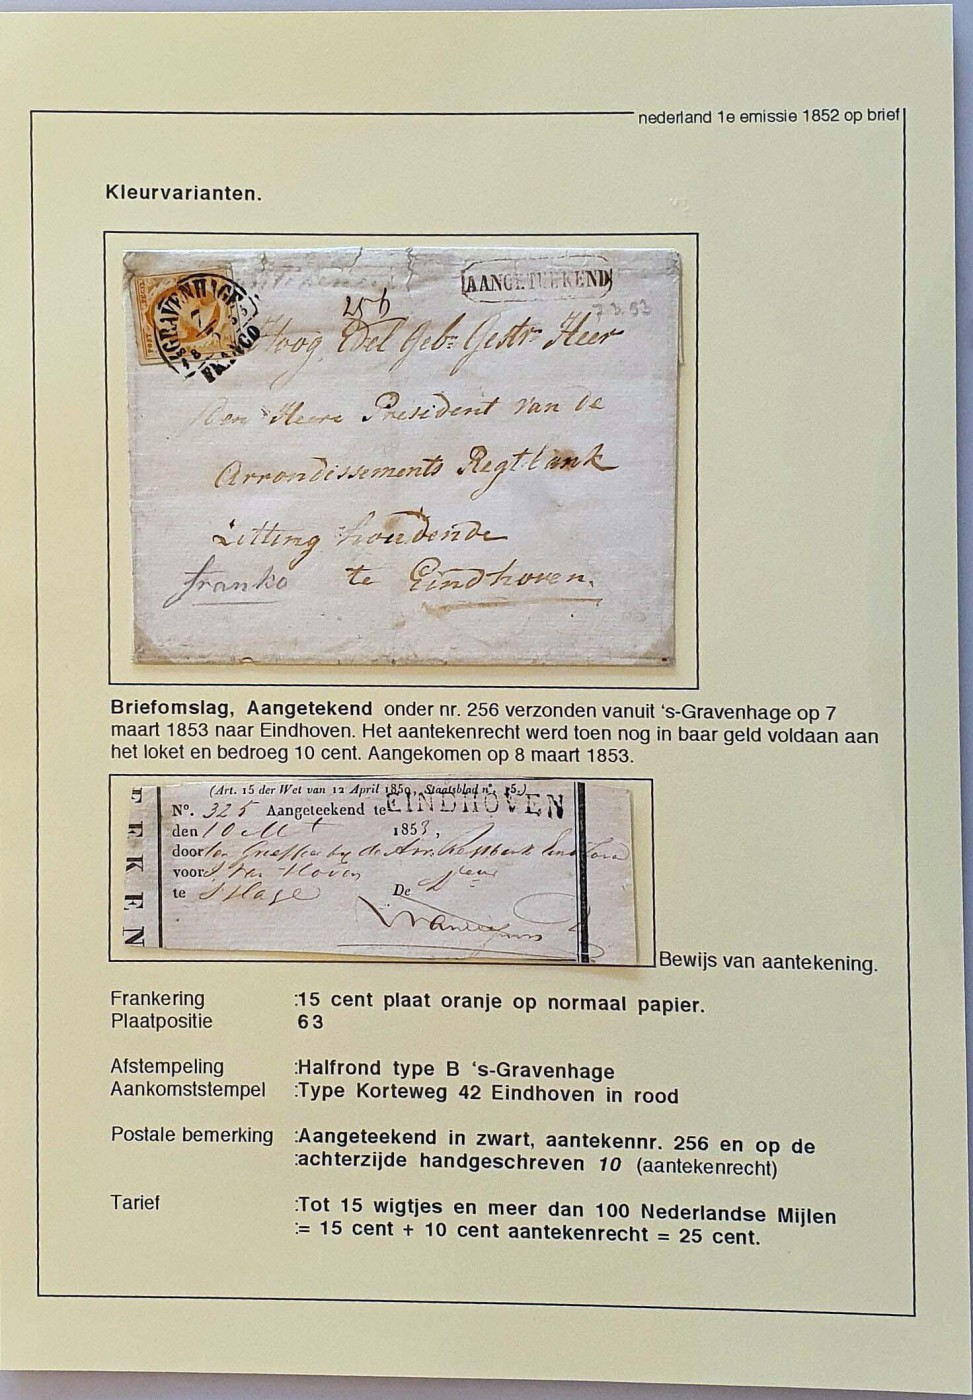 nederland 1e emissie 1852 op brief
Kleurvarianten.
AANGETEEKEND
's GRAVENHAGE
FRANCO
7.3.53
256
Hoog Edel Geb: Gestr: Heer
Den Heere President van de
Arrondissements Regtbank
Zitting houdende
franko te Eindhoven.
Briefomslag, Aangetekend onder nr. 256 verzonden vanuit ‘s-Gravenhage op 7
maart 1853 naar Eindhoven. Het aantekenrecht werd toen nog in baar geld voldaan aan
het loket en bedroeg 10 cent. Aangekomen op 8 maart 1853.
(Art. 15 der Wet van 12 April 1850, Staatsblad n°. 15.)
N°. 325 Aangeteekend te EINDHOVEN
den 10 Mt 1853,
door den Greffier by de Arr.
voor van Hoven
te S Hage De
TEEKEN
Bewijs van aantekening.
Frankering :15 cent plaat oranje op normaal papier.
Plaatpositie 63
Afstempeling :Halfrond type B ‘s-Gravenhage
Aankomststempel :Type Korteweg 42 Eindhoven in rood
Postale bemerking :Aangeteekend in zwart, aantekennr. 256 en op de
:achterzijde handgeschreven 10 (aantekenrecht)
Tarief :Tot 15 wigtjes en meer dan 100 Nederlandse Mijlen
:= 15 cent + 10 cent aantekenrecht = 25 cent.